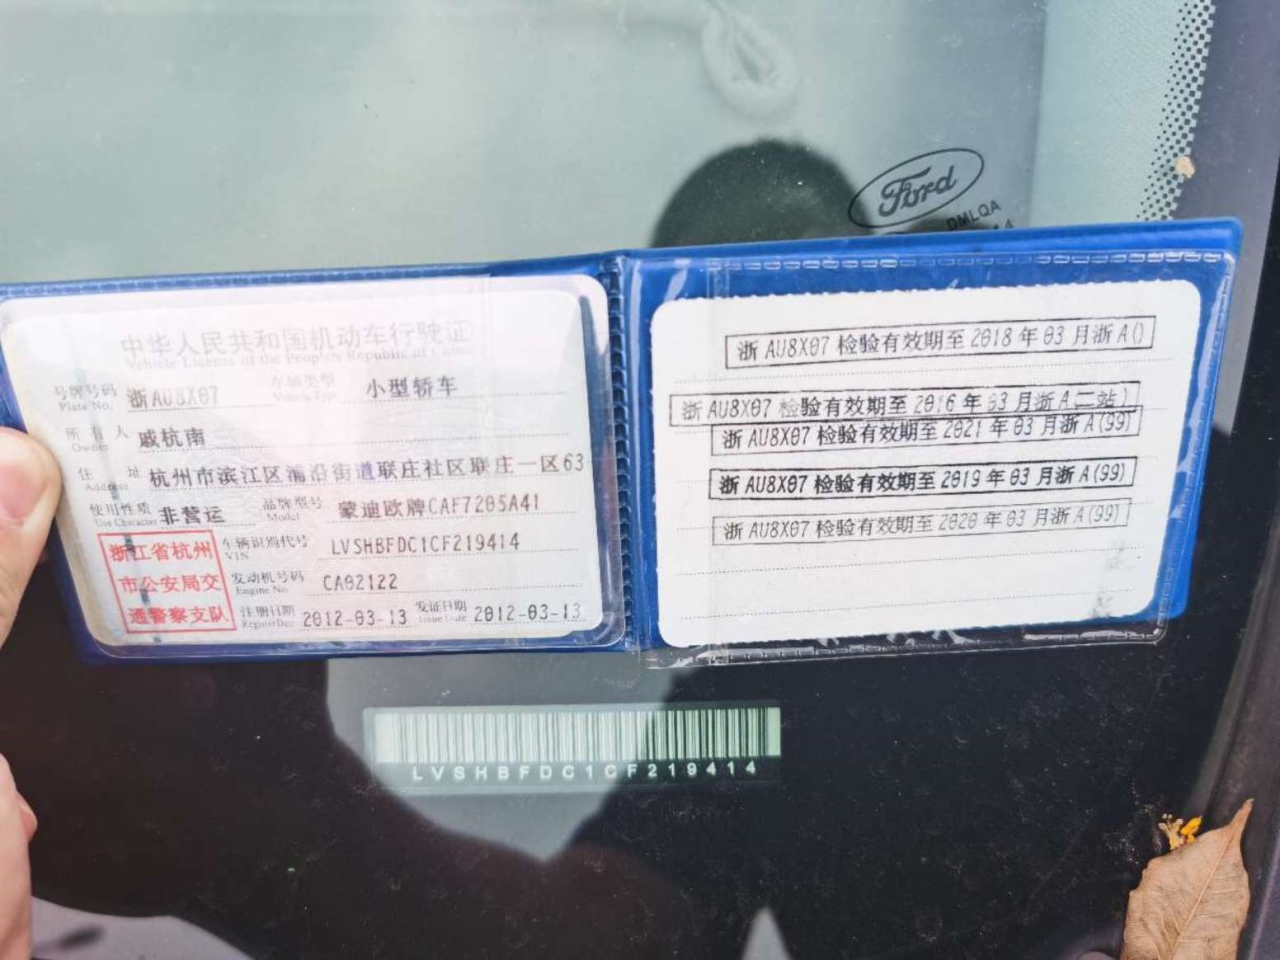 Ford
DMLQA
中华人民共和国机动车行驶证
Vehicle License of the People's Republic of China
号牌号码 浙AU8X07 车辆类型 小型轿车
Plate No. Vehicle Type
所有人 戚杭南
Owner
住址 杭州市滨江区浦沿街道联庄社区联庄一区63
Address
使用性质 非营运 品牌型号 蒙迪欧牌CAF7205A41
Use Character Model
浙江省杭州
市公安局交
通警察支队
车辆识别代号 LVSHBFDC1CF219414
VIN
发动机号码 CA02122
Engine No.
注册日期 2012-03-13 发证日期 2012-03-13
Register Date Issue Date
浙 AU8X07 检验有效期至 2018 年 03 月浙 A()
浙 AU8X07 检验有效期至 2016 年 03 月浙 A(二站)
浙 AU8X07 检验有效期至 2021 年 03 月浙 A(99)
浙 AU8X07 检验有效期至 2019 年 03 月浙 A(99)
浙 AU8X07 检验有效期至 2020 年 03 月浙 A(99)
LVSHBFDC1CF219414